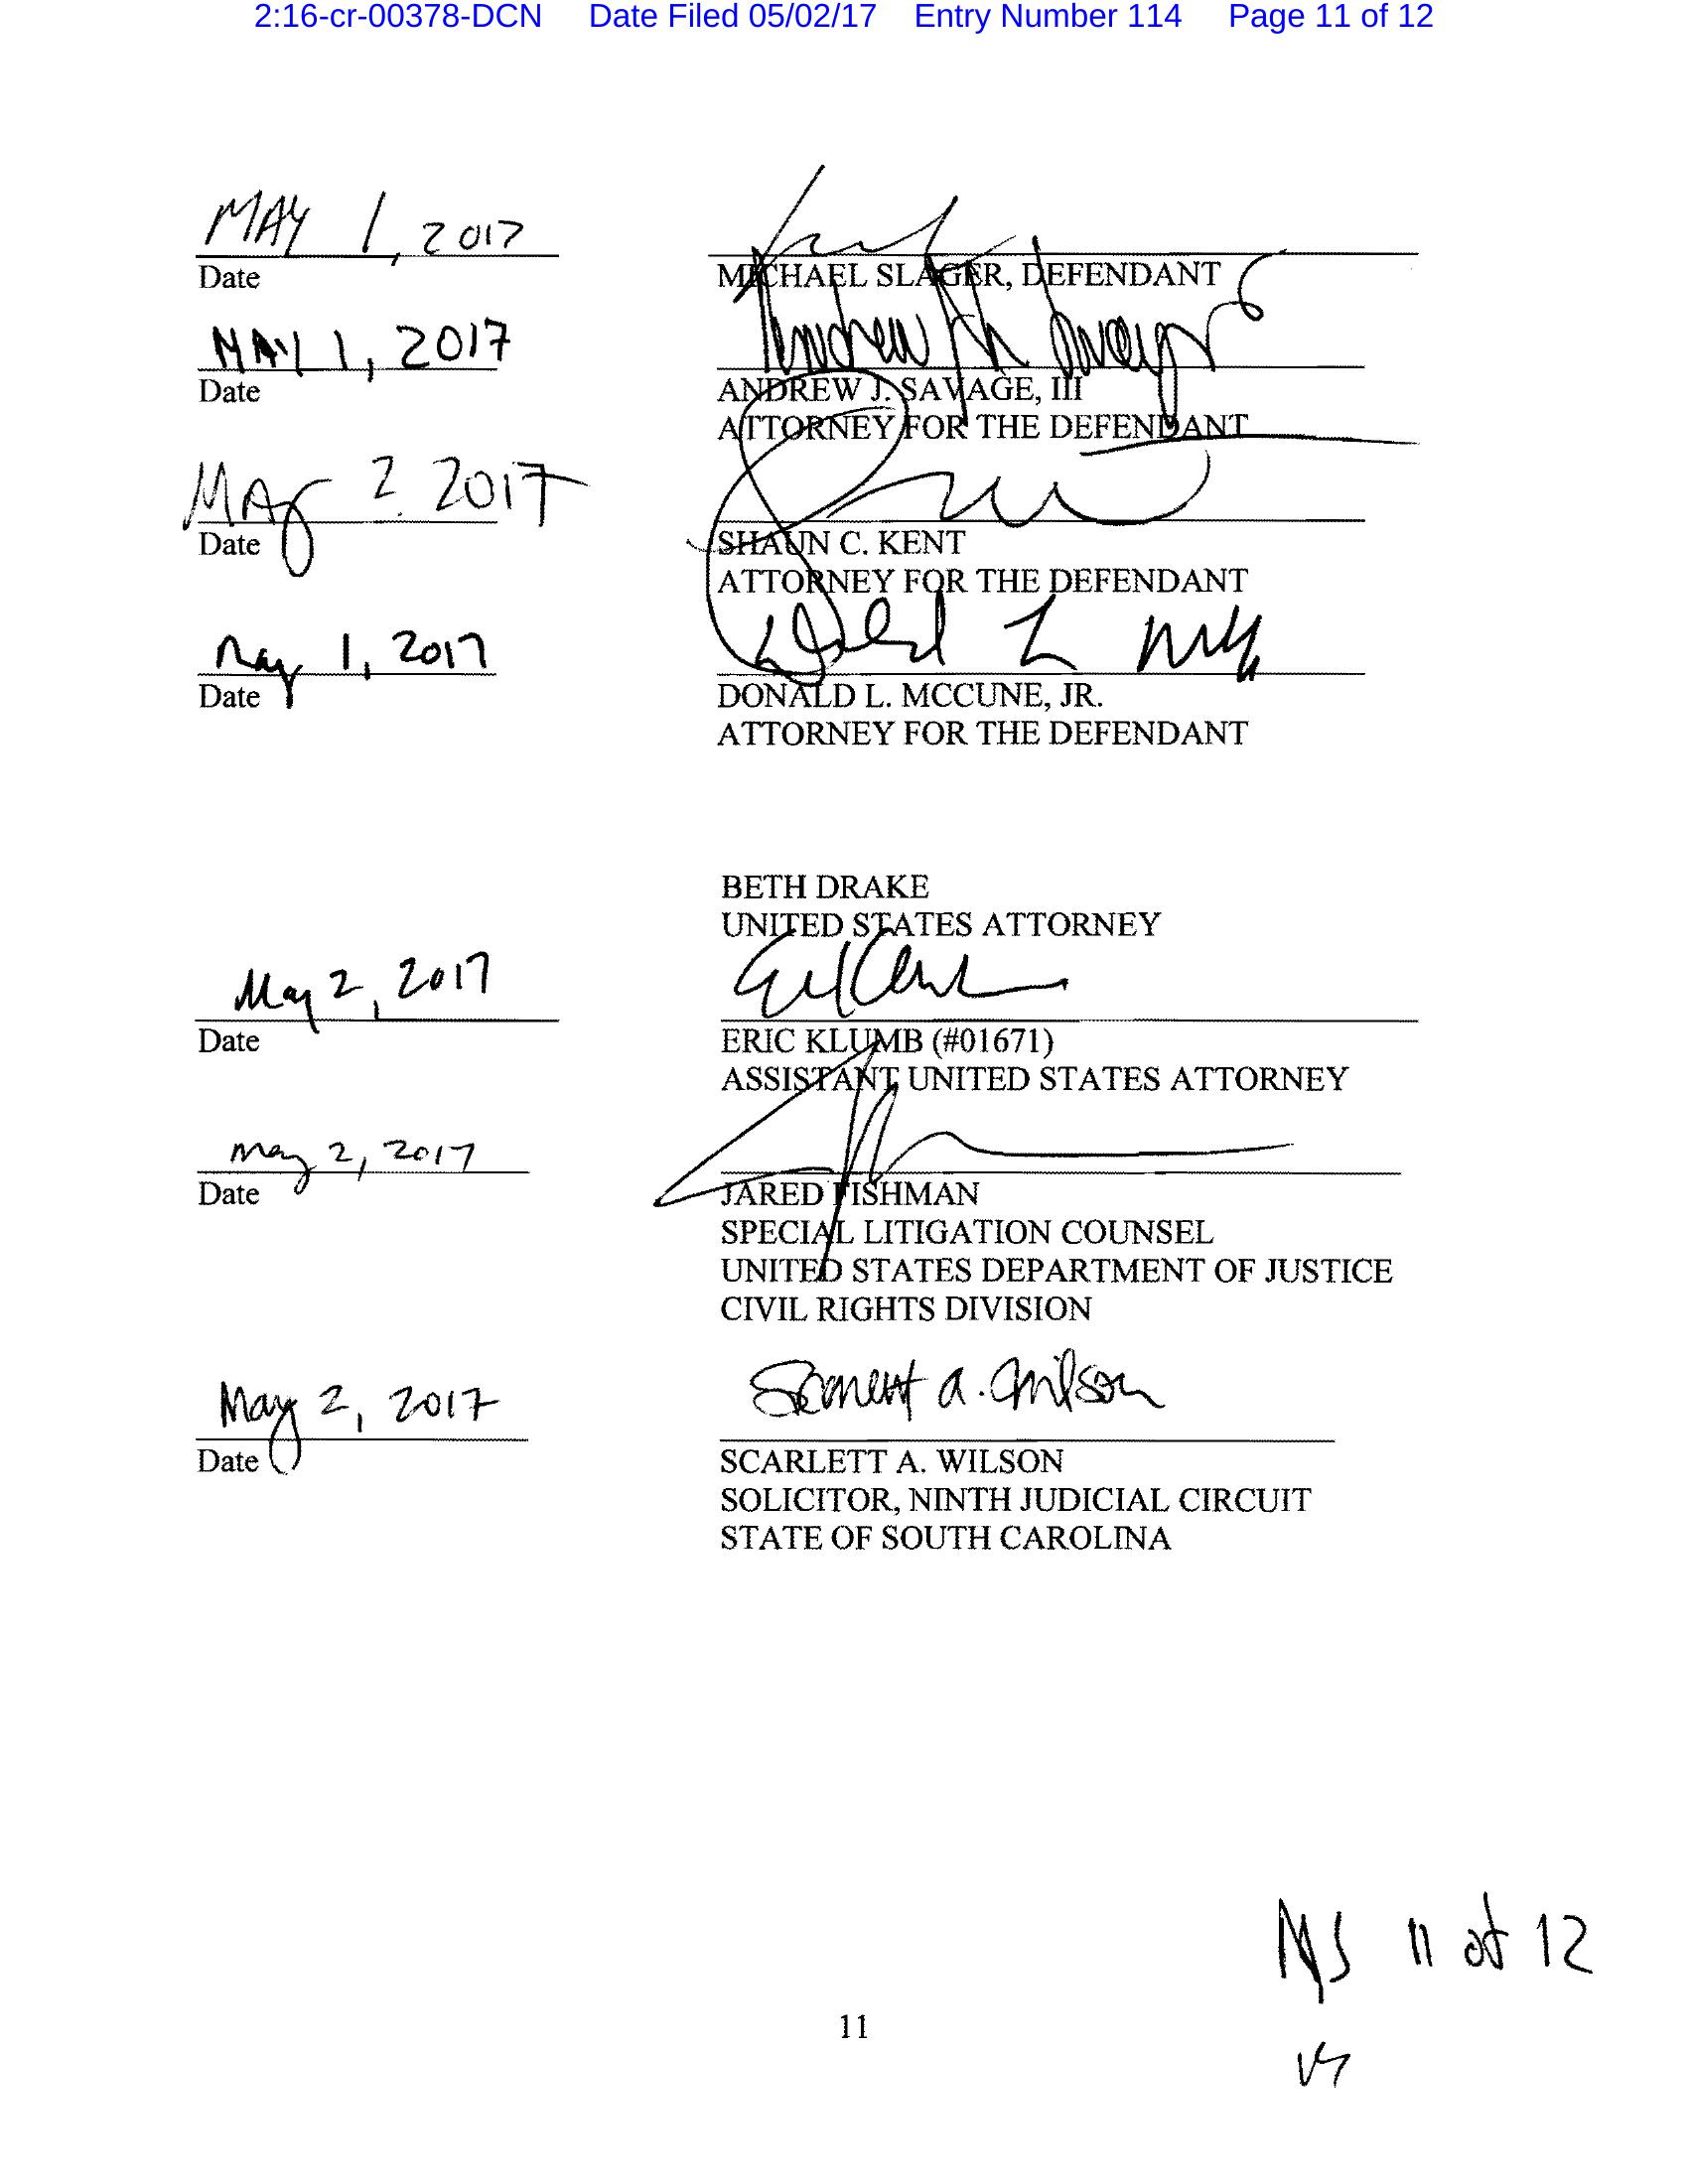 2:16-cr-00378-DCN Date Filed 05/02/17 Entry Number 114 Page 11 of 12
MAY 1, 2017
Date
MICHAEL SLAGER, DEFENDANT
MAY 1, 2017
Andrew J. Savage
Date
ANDREW J. SAVAGE, III
ATTORNEY FOR THE DEFENDANT
MAY 2 2017
Date
SHAUN C. KENT
ATTORNEY FOR THE DEFENDANT
May 1, 2017
Donald L
Date
DONALD L. MCCUNE, JR.
ATTORNEY FOR THE DEFENDANT
BETH DRAKE
UNITED STATES ATTORNEY
May 2, 2017
Date
ERIC KLUMB (#01671)
ASSISTANT UNITED STATES ATTORNEY
May 2, 2017
Date
JARED FISHMAN
SPECIAL LITIGATION COUNSEL
UNITED STATES DEPARTMENT OF JUSTICE
CIVIL RIGHTS DIVISION
May 2, 2017
Scarlett A. Wilson
Date
SCARLETT A. WILSON
SOLICITOR, NINTH JUDICIAL CIRCUIT
STATE OF SOUTH CAROLINA
MS 11 of 12
11